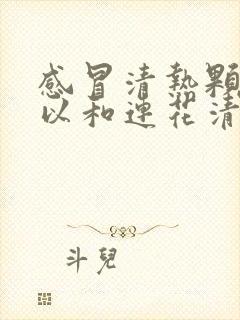 感冒清熱顆
以和連花清
斗兒